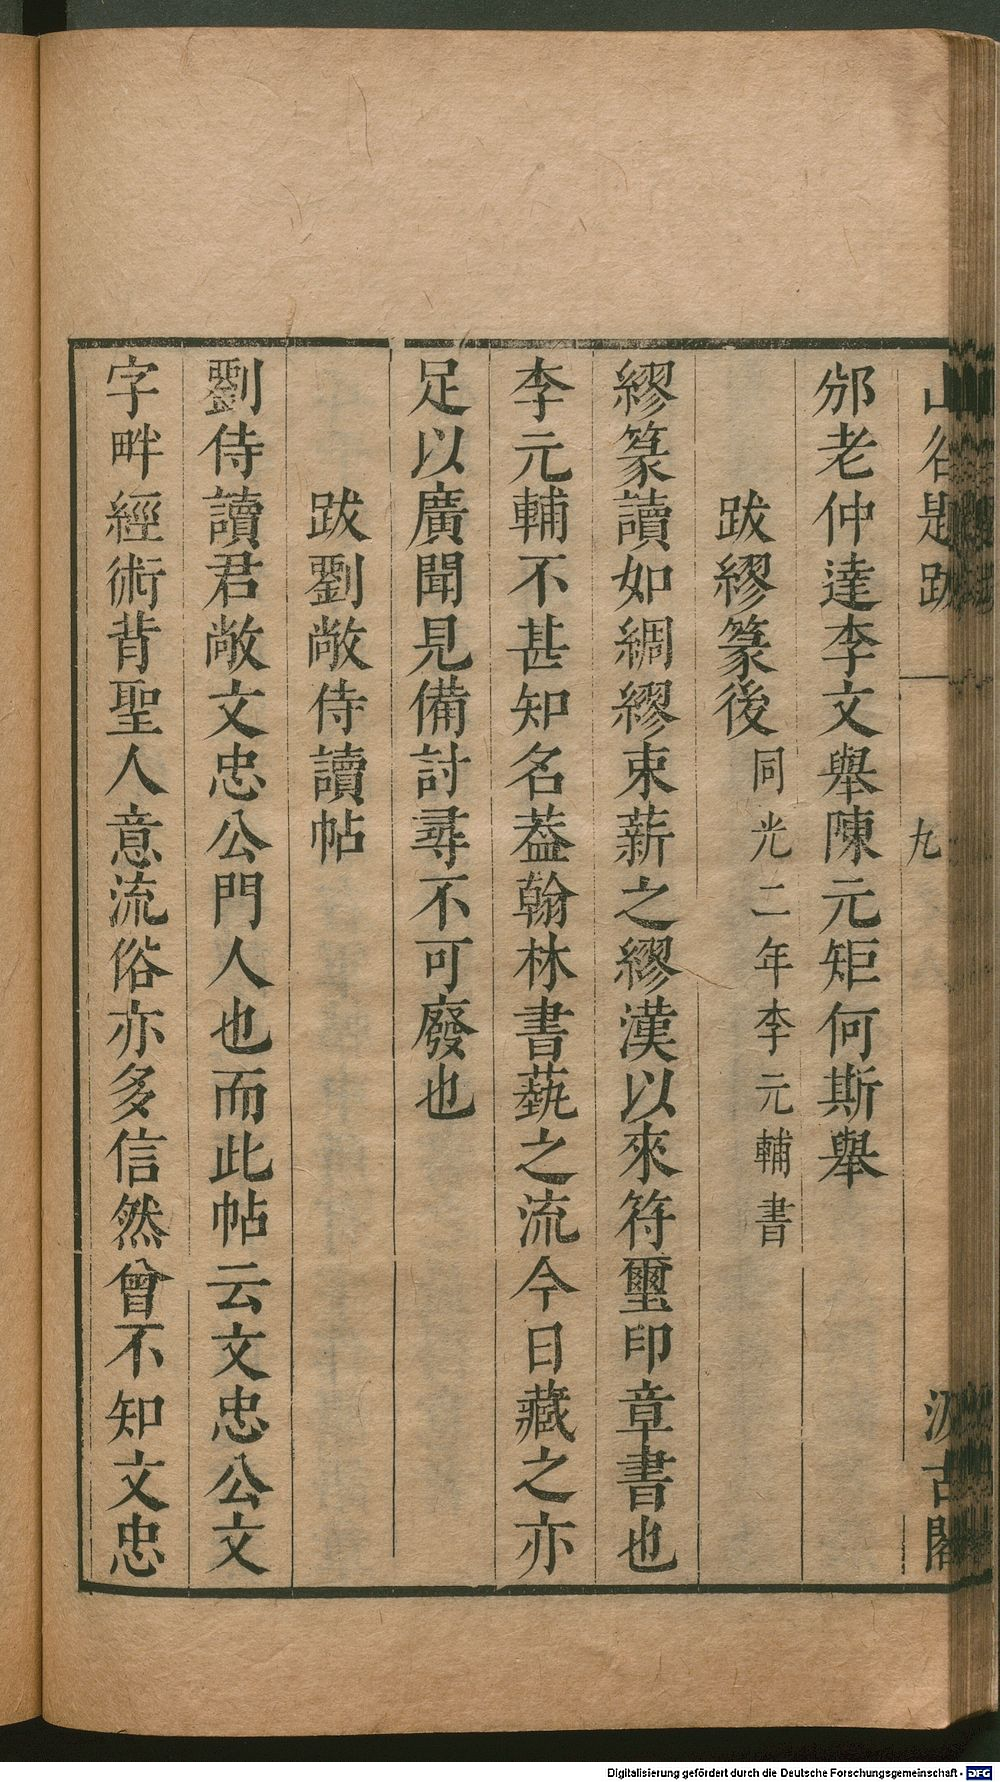 山谷題跋 一 九 汲古閣
邠老仲達李文舉陳元矩何斯舉
跋繆篆後同光二年李元輔書
繆篆讀如綢繆束薪之繆漢以來符璽印章書也
李元輔不甚知名葢翰林書藝之流今日藏之亦
足以廣聞見備討尋不可廢也
跋劉敞侍讀帖
劉侍讀君敞文忠公門人也而此帖云文忠公文
字畔經術背聖人意流俗亦多信然曾不知文忠
Digitalisierung gefördert durch die Deutsche Forschungsgemeinschaft - DFG